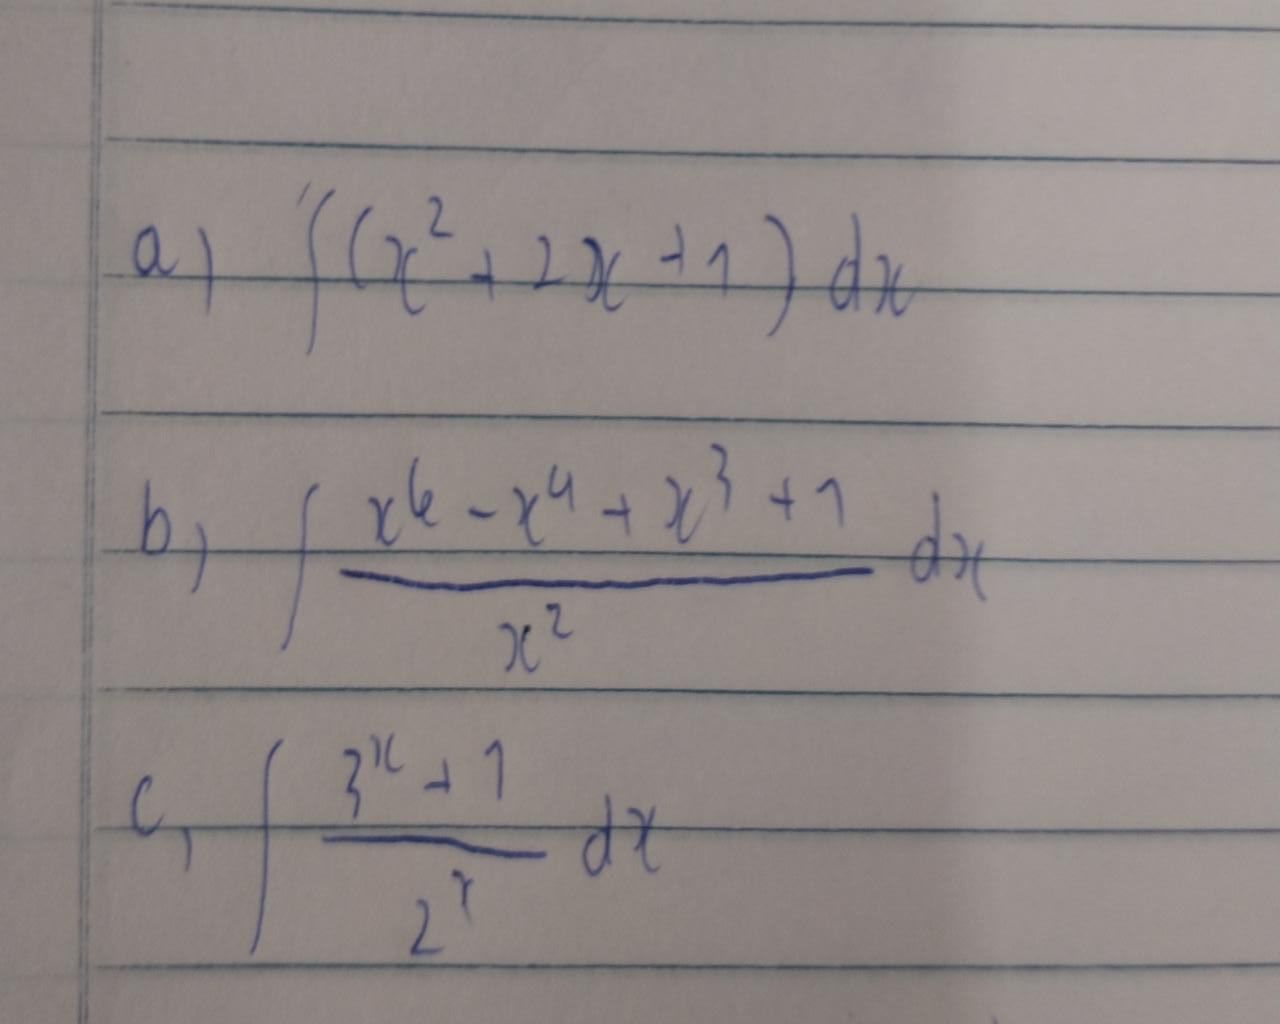 a) ∫(x² + 2x + 1) dx
b) ∫ (x⁶ - x⁴ + x³ + 1)/x² dx
c, ∫ (3ˣ + 1)/2ˣ dx